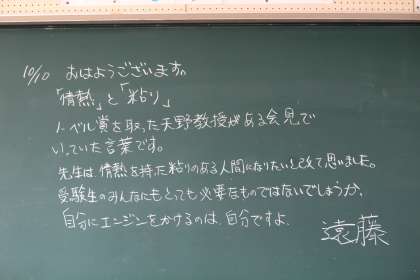 10/10 おはようございます。
「情熱」と「粘り」
ノーベル賞を取った天野教授がある会見で
いっていた言葉です。
先生は情熱を持った粘りのある人間になりたいと改て思いました。
受験生のみんなにもとても必要なものではないでしょうか。
自分にエンジンをかけるのは、自分ですよ。
遠藤